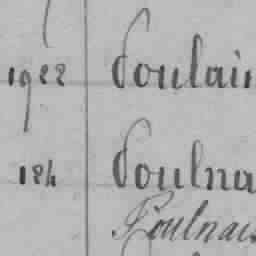 1922 Poulain
124 Poulna
Poulnais